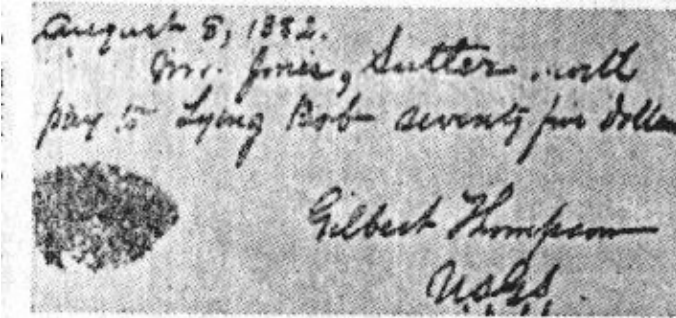 August 8, 1882.
Mr. Jones, Sutler, will
pay to Lying Bob seventy five dollars
Gilbert Thompson
U.S.G.S.